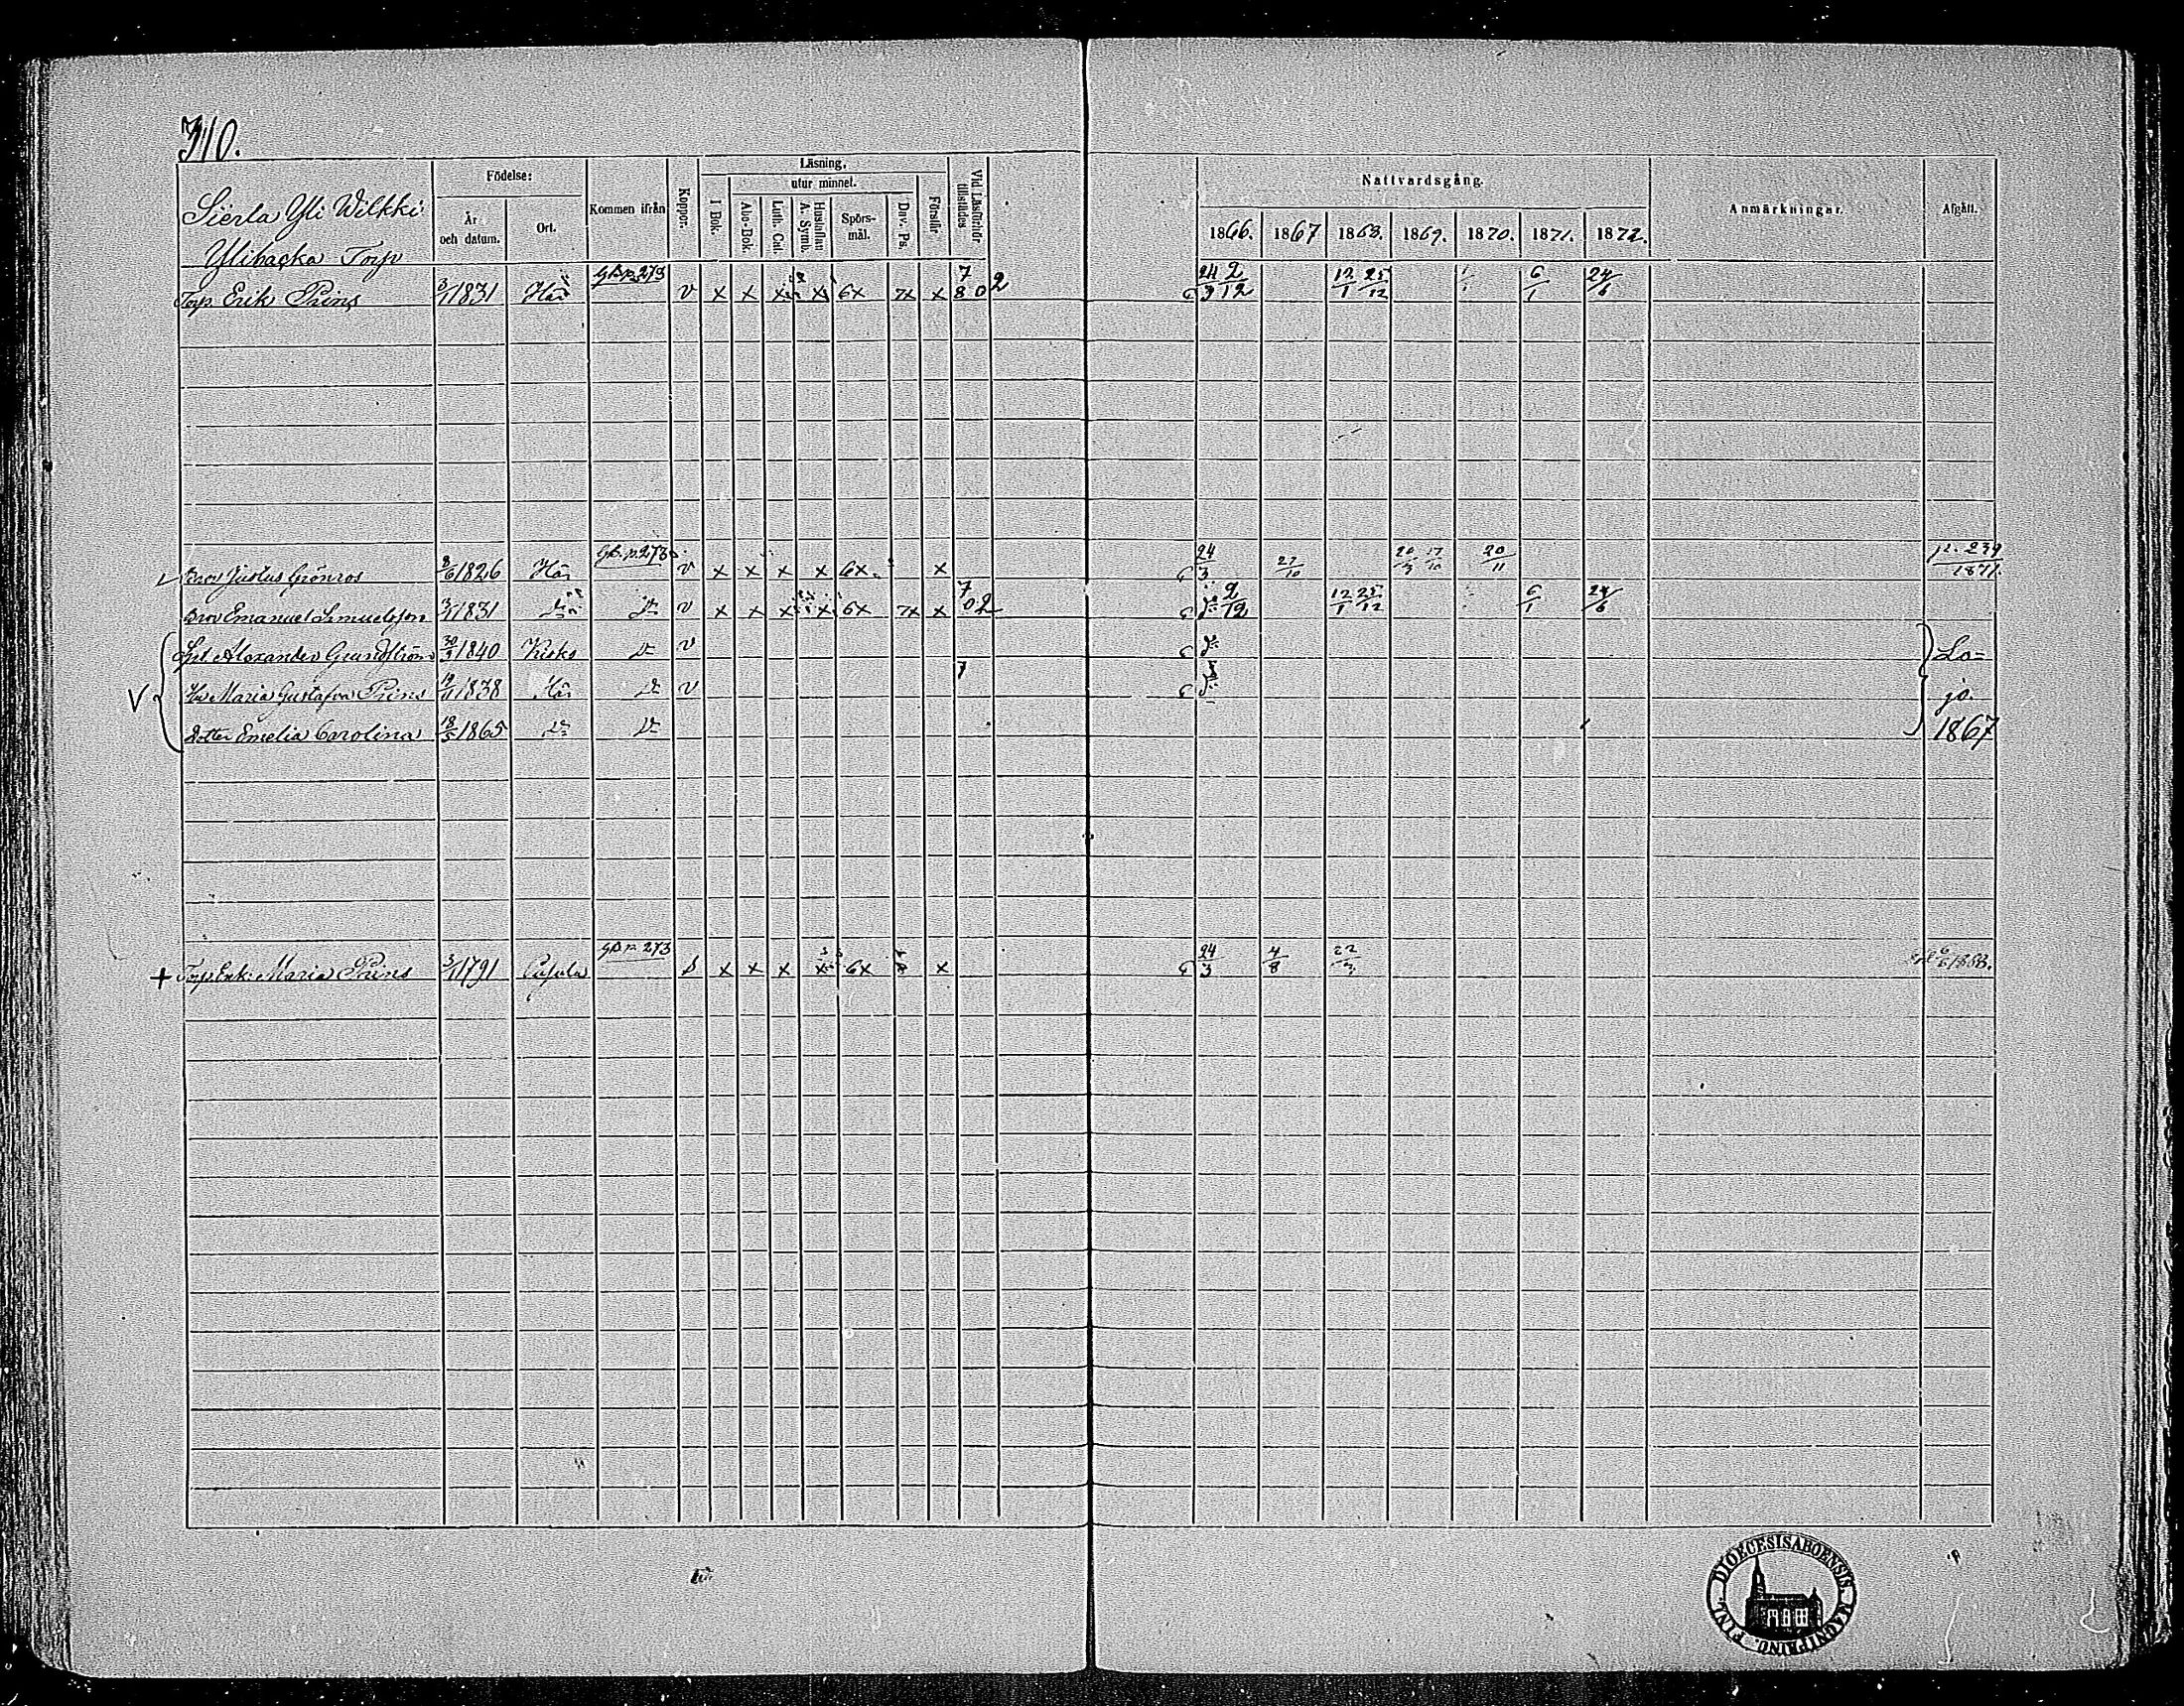 310.
Sierla Yli Wilkki
Ylibacka Torp
Födelse:
År och datum.
Ort.
Kommen ifrån
Koppor.
Läsning.
utur minnet.
I Bok.
Abc-Bok.
Luth. Cat.
Hustaflan A. Symb.
Spörs-mål.
Dav. Ps.
Förstår
Vid Läsförhör tillstädes
Nattvardsgång.
1866. 1867 1868. 1869. 1870. 1871. 1872.
Anmärkningar.
Afgått.
Torp. Erik Prins 3/1 1831 Här GB.p.273 v x x x x 6x 7x x 7 8 0 2 24/3 2/12 12/1 25/12 6/1 24/6
Justus Grönros 8/6 1826 Här GB.p.273 v x x x x 6x x 24/3 27/10 17/10 20/11 p. 239 1871.
Emanuel Samuelsson 3/1 1831 Do Do v x x x x 6x 7x x 7 0 2 Do 2/12 12/1 25/12 6/1 24/6
Alexander Grundström 30/3 1840 Kisko Do v Do Lo-
V Hu Maria Gustafva Prins 19/1 1838 Här Do v 7 Do jo.
Dotter Emelia Carolina 18/5 1865 Do Do 1867
+ Torp. Enk. Maria Prins 3/1 1791 GB.p.273 x x x x 6x x 24/3 4/8 1868.
DIOECESIS ABOENSIS MAGNI PRINC. FINL.